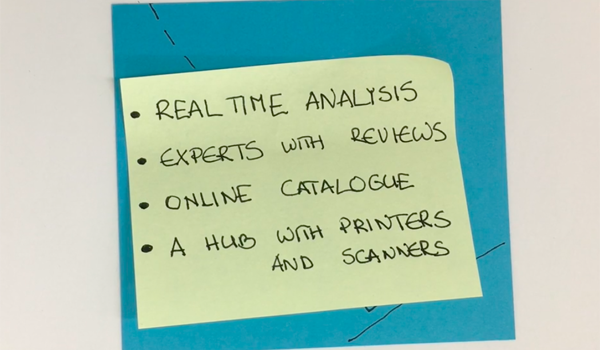 • REAL TIME ANALYSIS
• EXPERTS WITH REVIEWS
• ONLINE CATALOGUE
• A HUB WITH PRINTERS
AND SCANNERS